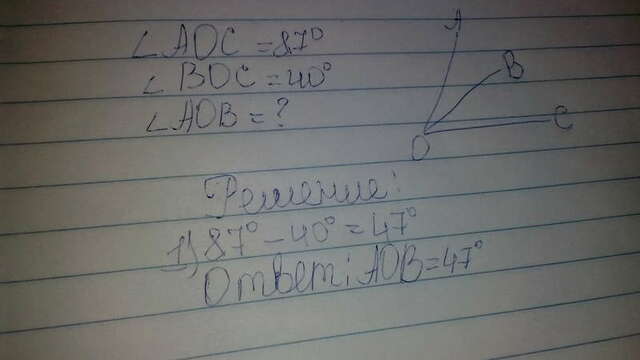 ∠AOC = 87°
∠BOC = 40°
∠AOB = ?
A
B
O
C
Решение:
1) 87° - 40° = 47°
Ответ: AOB = 47°